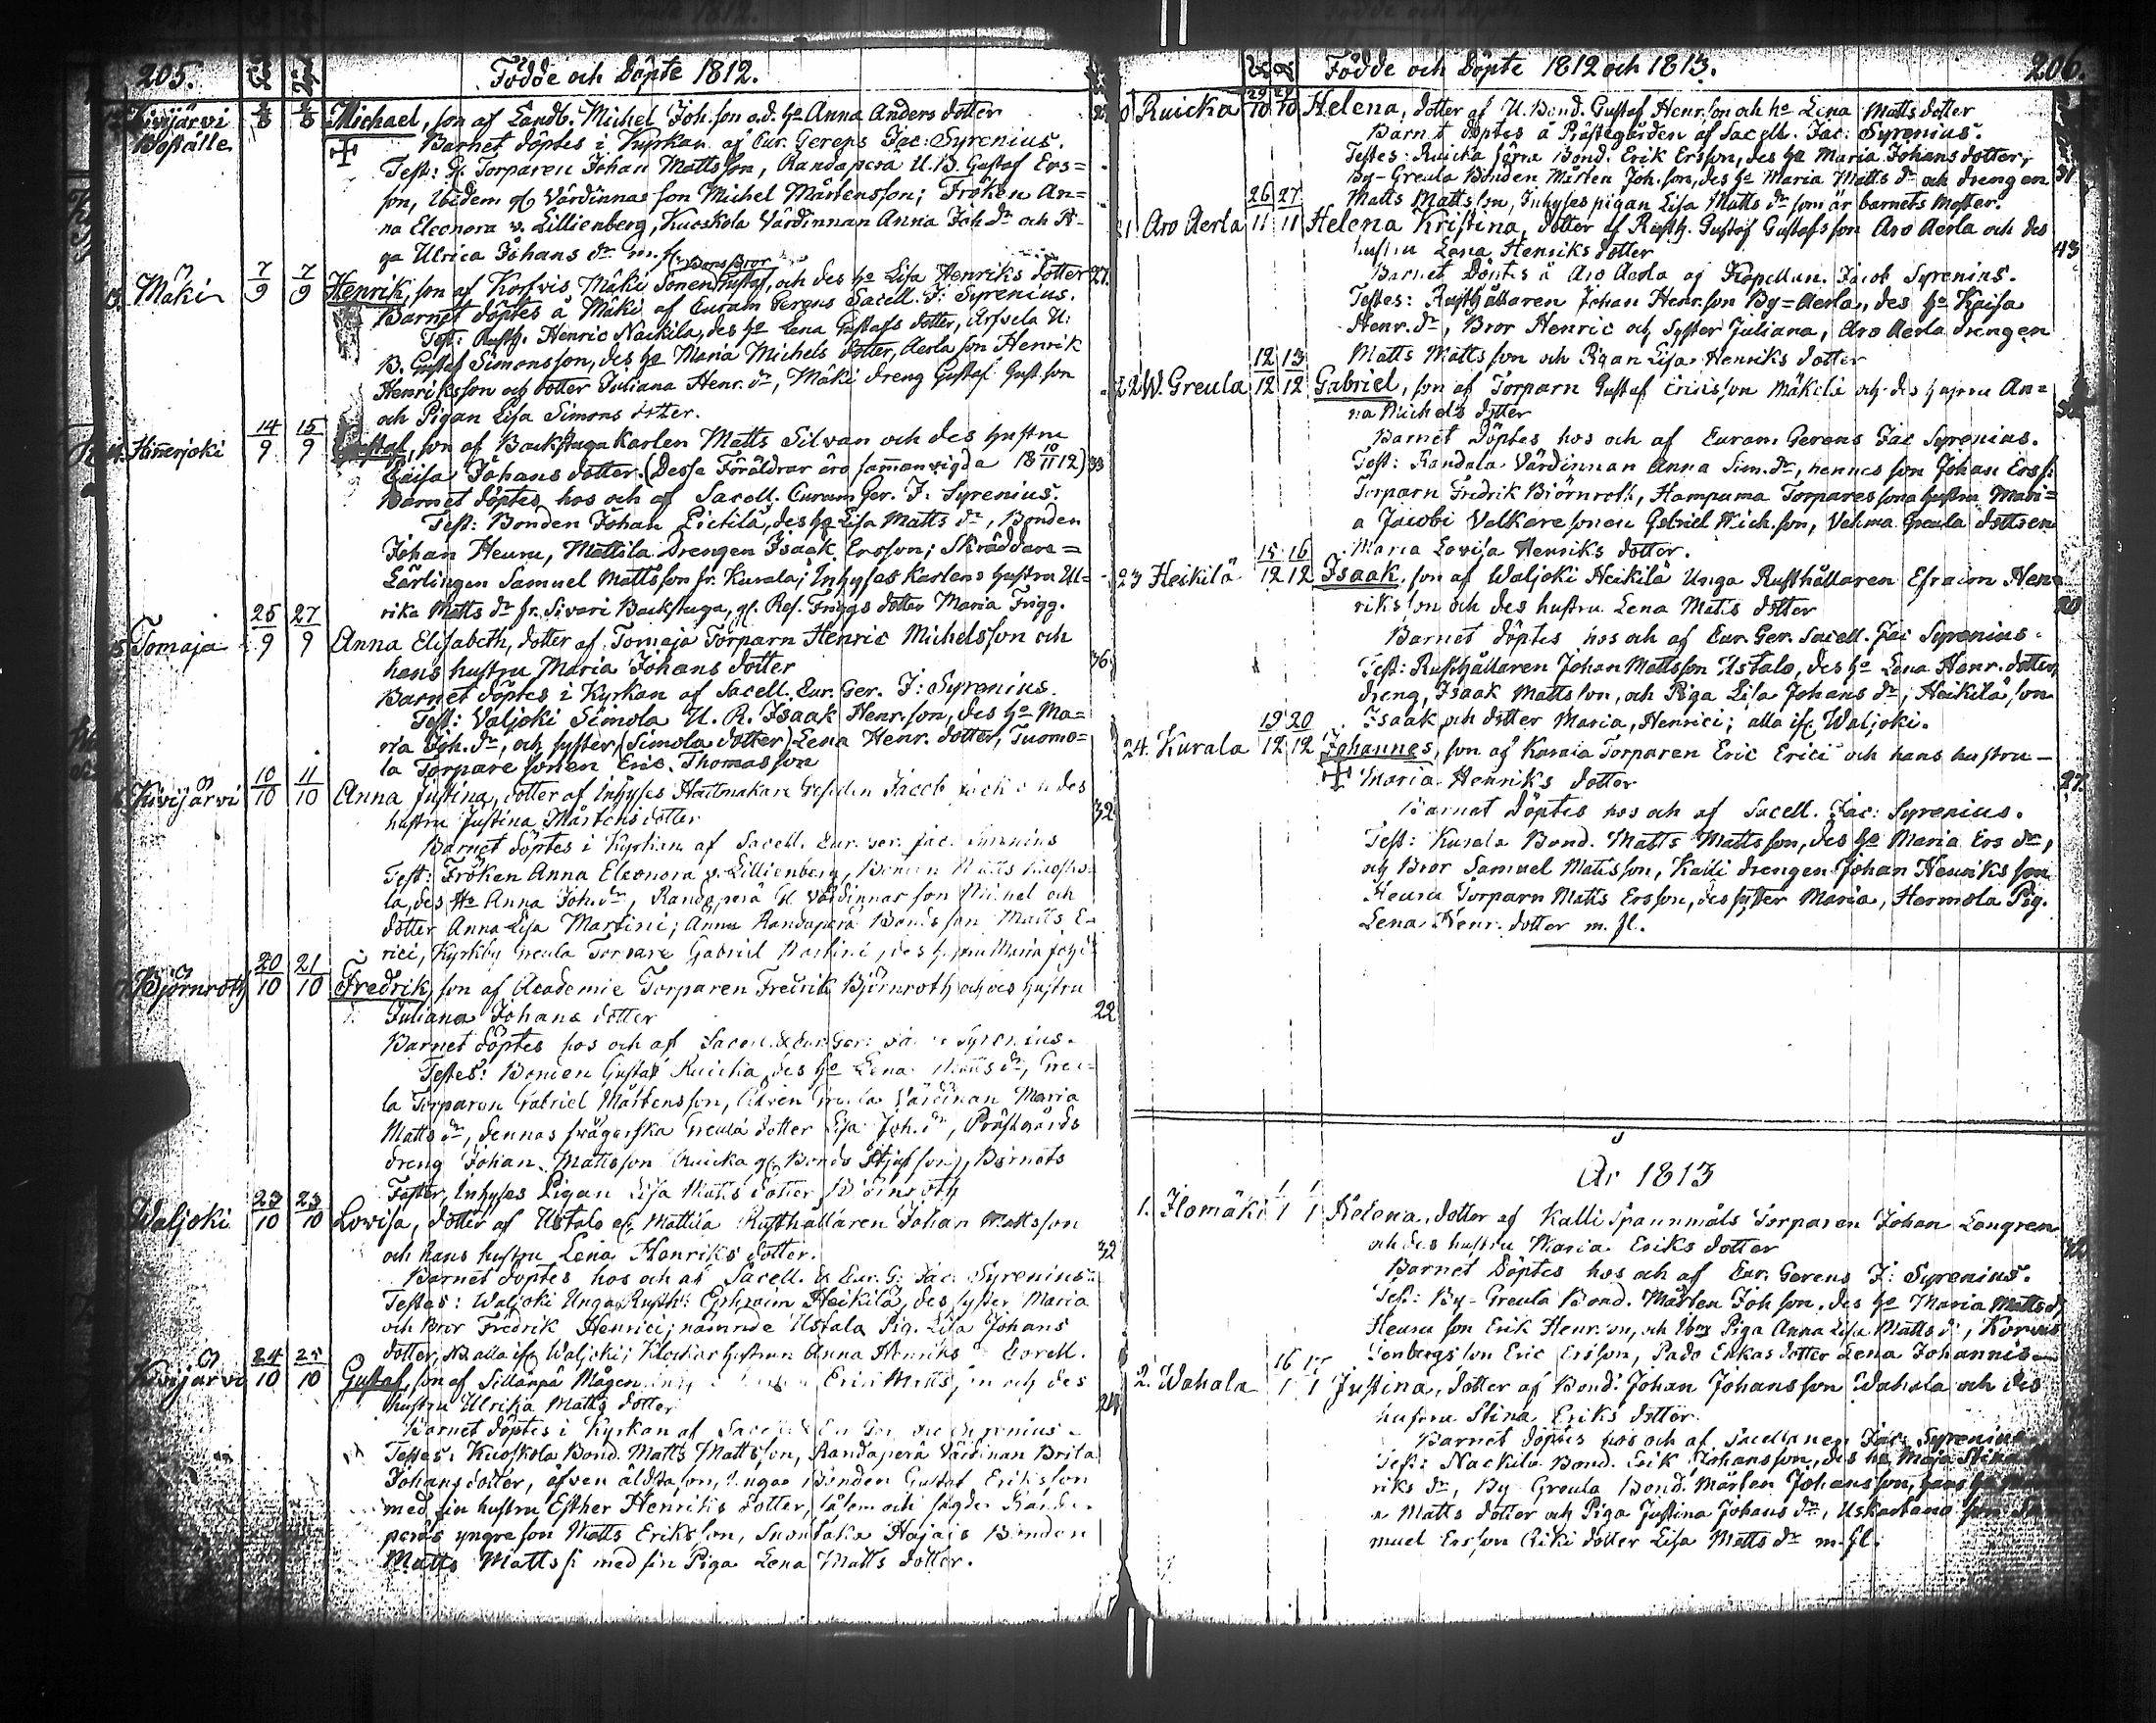 205. Födde och Döpte 1812.
Kivijärvi 8 8 Michael, son af Landb. Michel Joh.son o.d. ho Anna Anders dotter
Boställe Barnet döptes i Kyrkan af Cur. Gerens Jac: Syrenius.
Test: Torparen Johan Mattsson, Randapera U.B. Gustaf Ers=
son, Ibidem Värdinnas son Michel Mårtensson; Fröken An=
na Eleonora v. Lillienberg, Kuoskola Värdinnan Anna Joh. dr och
ga Ulrica Johans dr m. fl.
Bors Bror
Mäki 7/9 7/9 Henrik, son af Korfvis Mäki Sonen Gustaf, och des ho Lisa Henriks dotter 27.
Barnet döptes å Mäki af Curam Gerens Sacell. J: Syrenius.
Test: Rusth. Henric Nackila, des ho Lena Gustafs dotter, Arfvela U:
B. Gustaf Simonsson, des ho Maria Michels dotter, Aerla son Henrik
Henriksson och dotter Juliana Henr. dr, Mäki dreng Gustaf Gust.son
och Pigan Lisa Simons dotter.
Hinerjoki 14/9 15/9 Gustaf, son af Backstuga Karlen Matts Silvan och des hustru
Caisa Johans dotter. (Desse Föräldrar äro samanvigda 18 10/11 12) 33
Barnet döptes hos och af Sacell. Curam Ger. J: Syrenius.
Test: Bonden Johan Eictilä, des ho Lisa Matts dr, Bonden
Johan Heuru, Mattila Drengen Isaak Ersson; Skräddare=
Lärlingen Samuel Mattsson fr. Kurala; Inhyses Karlens hustru Ul=
rika Matts dr fr. Sivari Backstuga, Ref. Friggs dotter Maria Frigg.
Tomaja 25/9 27/9 Anna Elisabeth, dotter af Tomaja Torparn Henric Michelsson och
hans hustru Maria Johans dotter 36.
Barnet döptes i Kyrkan af Sacell. Cur. Ger. J: Syrenius.
Test: Valjoki Simola U. R. Isaak Henr.son, des ho Ma=
ria Joh. dr, och syster (Simola dotter) Lena Henr. dotter, Tuomo=
la Torpare sonen Eric Thomasson
Kivijärvi 10/10 11/10 Anna Justina, dotter af Inhyses Hattmakare Gesellen Jacob des
hustru Justina Mårtens dotter 32
Barnet döptes i Kyrkan af Sacell. Cur. Ger. Jac. Syrenius
Test: Fröken Anna Eleonora v. Lillienberg, Bonden Matts Kuosko=
la, des Ho Anna Joh. dr, Randaperä U. Värdinnas son Michel och
dotter Anna Lisa Martini; Anna Randaperä Bonds son Matts E=
rici, Kyrkby Greula Torpare Gabriel Martini, des hustru Maria
Björnroth 20/10 21/10 Fredrik, son af Academie Torparen Fredrik Björnroth och des hustru
Juliana Johans dotter 22
Barnet döptes hos och af Sacell. & Cur. Ger: Syrenius.
Testes: Bonden Gustaf Ruicka, des ho Lena Matts dr, Greu=
la Torparen Gabriel Mårtensson, Greula Värdinan Maria
Matts dr, dennas svägerska Greula dotter Lisa Joh. dr, Präst​gårds
dreng Johan Mattsson Ruicka Bonds Stjufson, Barnets
Faster, Inhyses Pigan Lisa Matts dotter Björnroth
Waljoki 23/10 23/10 Lovisa, dotter af Ustalo Mattila Rusthållaren Johan Mattsson
och hans hustru Lena Henriks dotter. 32
Barnet döptes hos och af Sacell. & Cur. G: Jac. Syrenius.
Testes: Waljoki Unga Rusth: Ephraim Heikilä, des syster Maria
och Bror Fredrik Henrici; nämnde Ustala Pig. Lisa Johans
dotter, NB alla Waljoki; Klockar hustrun Anna Henriks
Kivijärvi 24/10 25/10 Gustaf, son af Sillanpä Mågen Eric Mattsson och des
hustru Ulrika Matts dotter 24
Barnet döptes i Kyrkan af Sacell & Cur Ger. Jac Syrenius.
Testes: Kuoskola Bond. Matts Mattsson, Randaperä Värdinan Brita
Johans dotter, äfven äldsta son, Unga Bonden Gustaf Eriksson
med sin hustru Esther Henriks dotter, och sagde Randa
peräs yngre son Matts Eriksson, Suontaka Hajais Bonden
Matts Matts s. med sin Piga Lena Matts dotter.
Födde och Döpte 1812 och 1813. 206.
Ruicka 29/10 29/10 Helena, dotter af U. Bond. Gustaf Henr.son och ho Lena Matts dotter
Barnet döptes å Prästegården af Sacell. Jac: Syrenius.
Testes: Ruicka förra Bond. Erik Ersson, des ho Maria Johans dotter,
By-Greula Bonden Mårten Joh.son, des ho Maria Matts dr och drengen 31
Matts Mattsson, Inhyses pigan Lisa Matts dr som är barnets Moster.
21 Aro Aerla 26/11 27/11 Helena Kristina, dotter af Rusth. Gustaf Gustafsson Aro Aerla och des
hustru Lena Henriks dotter 43
Barnet Döptes i Aro Aerla af Kapellan. Jacob Syrenius.
Testes: Rusthållaren Johan Henr.son By=Aerla, des ho Kaisa
Henr. dr, Bror Henric och Syster Juliana, Aro Aerla drengen
Matts Mattsson och Pigan Lisa Henriks dotter
22 W. Greula 12/12 13/12 Gabriel, son af Torparn Gustaf Ericsson Mäkilä och des hustru An=
na Michels dotter
Barnet Döptes hos och af Curam Gerens Jac Syrenius.
Test: Randala Värdinnan Anna Sim. dr, hennes son Johan Ers s:
Torparn Fredrik Björnroth, Hampuma Torpares sona hustru Mari=
a Jacobi Valkare sonen Gabriel Mich.son, Vahma Greula dottren
Maria Lovisa Henriks dotter.
23 Heikilä 15/12 16/12 Isaak, son af Waljoki Heikilä Unga Rusthållaren Efraim Hen=
riksson och des hustru Lena Matts dotter 20
Barnet döptes hos och af Cur. Ger. Sacell. Jac Syrenius.
Test: Rusthållaren Johan Mattsson Ustalo, des ho Lena Henr. dotter,
dreng, Isaak Mattsson, och Piga Lisa Johans dr, Heikilä son
Isaak och dotter Maria, Henrici; alla Waljoki.
24. Kurala 19/12 20/12 Johannes, son af Kurala Torparen Eric Erici och hans hustru
Maria Henriks dotter 27.
Barnet Döptes hos och af Sacell. Jac: Syrenius.
Test: Kurala Bond. Matts Mattsson, des ho Maria Ers dr,
och Bror Samuel Mattsson, Kalli drengen Johan Henriksson
Heuru Torparn Matts Ersson, des syster Maria, Hermola Pig.
Lena Henr. dotter m. fl.
År 1813
1. Ilomäki 1/1 1/1 Helena, dotter af Kalli Spannmåls Torparen Johan Lengren
och des hustru Maria Eriks dotter
Barnet Döptes hos och af Cur. Gerens J: Syrenius.
Test: By-Greula Bond. Mårten Joh.son, des ho Maria Matts d
Heuru son Erik Henr.son, och Piga Anna Lisa Matts d
son Eric Ersson, Pado Enkas dotter Lena Johannis
2. Wahala 16/1 17/1 Justina, dotter af Bond. Johan Johansson Wahala och des
hustru Stina Eriks dotter.
Barnet döptes hos och af Sacellanen Jac: Syrenius
Test: Nackila Bond. Erik Johansson, des ho Maja Stina
riks dr, By Greula Bond. Mårten Johansson, hans
a Matts dotter och Piga Justina Johans dr, Uskartano
muel Ersson Riki dotter Lisa Matts dr m. fl.